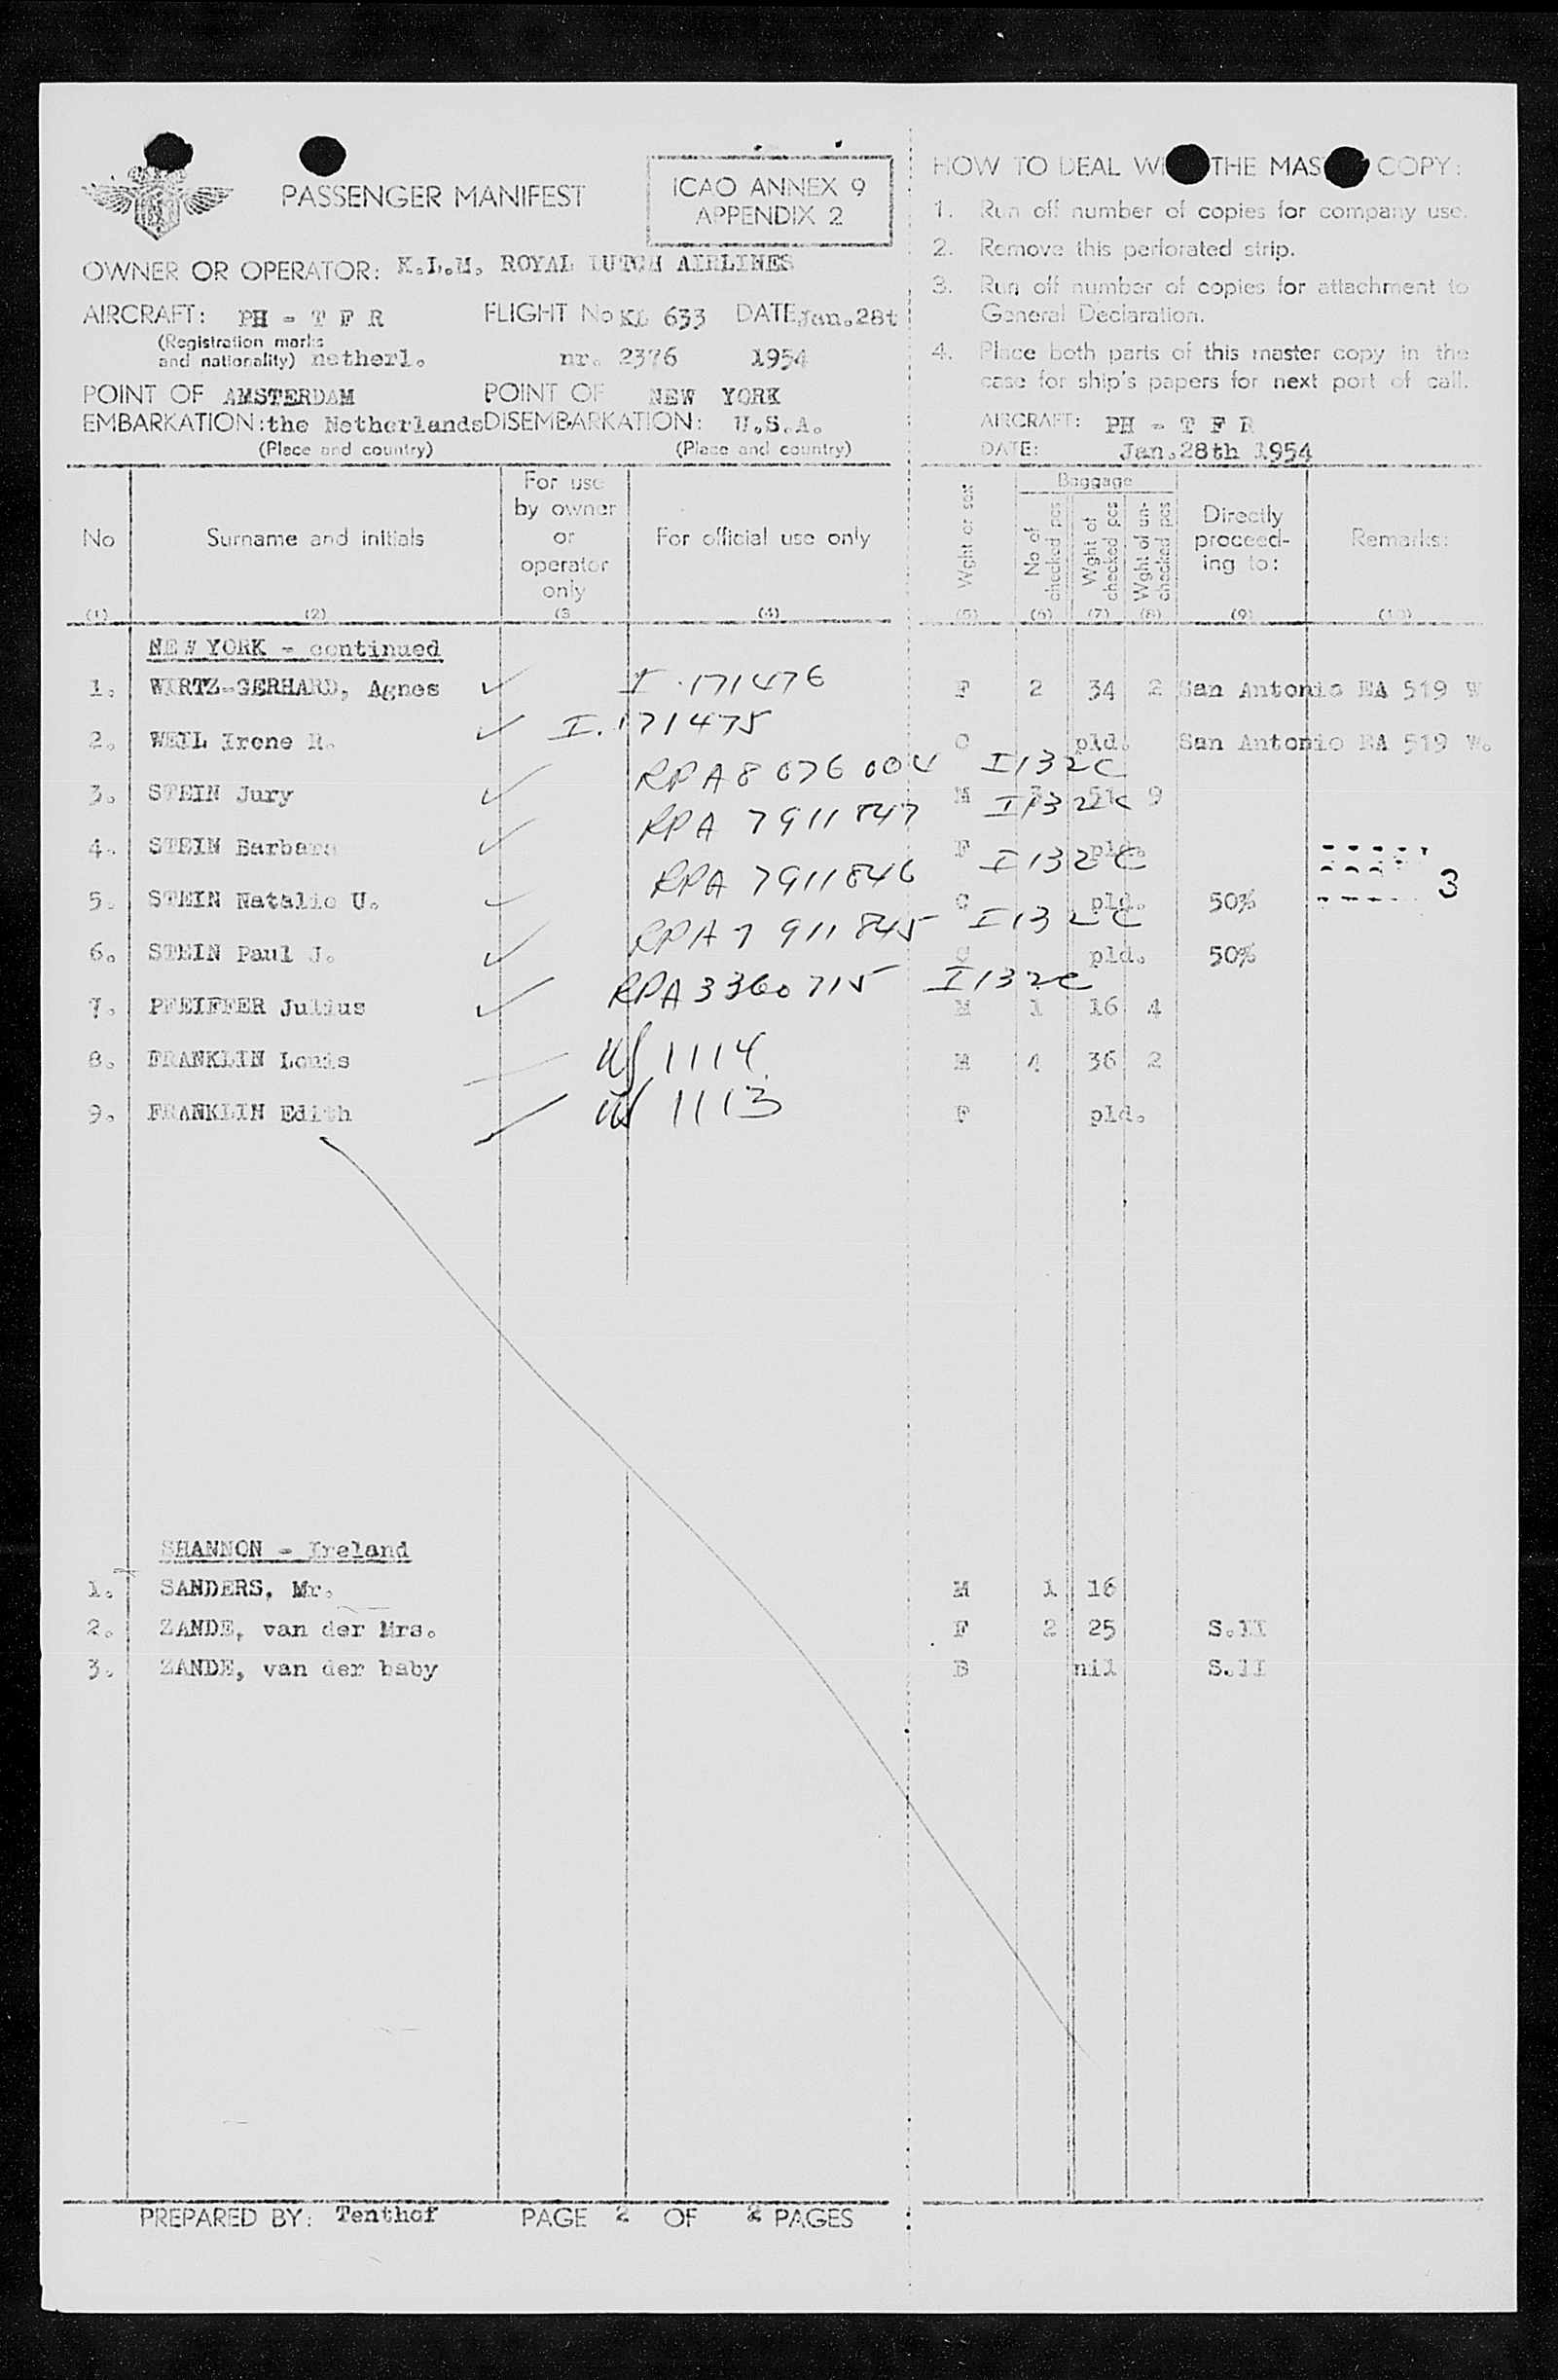 PASSENGER MANIFEST
ICAO ANNEX 9
APPENDIX 2
OWNER OR OPERATOR: K.L.M. ROYAL DUTCH AIRLINES
AIRCRAFT: PH - T F R FLIGHT No KL 633 DATE Jan.28t
(Registration marks
and nationality) netherl. nr. 2376 1954
POINT OF AMSTERDAM POINT OF NEW YORK
EMBARKATION: the Netherlands DISEMBARKATION: U.S.A.
(Place and country) (Place and country)
HOW TO DEAL WI THE MAS COPY:
1. Run off number of copies for company use.
2. Remove this perforated strip.
3. Run off number of copies for attachment to
General Declaration.
4. Place both parts of this master copy in the
case for ship's papers for next port of call.
AIRCRAFT: PH - T F R
DATE: Jan.28th 1954
No
Surname and initials
For use
by owner
or
operator
only
For official use only
Wght or sex
Baggage
No of
checked pcs
Wght of
checked pcs
Wght of un-
checked pcs
Directly
proceed-
ing to:
Remarks:
(1) (2) (3 (4) (5) (6) (7) (8) (9) (10)
NEW YORK - continued
1. WIRTZ-GERHARD, Agnes I. 171476 F 2 34 2 San Antonio EA 519 W
2. WEIL Irene R. I. 171475 C pld. San Antonio EA 519 W.
3. STEIN Jury RPA 8 076 004 I 132C M 3 51 9
4. STEIN Barbara RPA 7911847 I 132C F pld.
5. STEIN Natalie U. RPA 7911846 I 132C C pld. 50% 3
6. STEIN Paul J. RPA 7 911 845 I 132C C pld. 50%
7. PFEIFFER Julius RPA 3360715 I 132C M 1 16 4
8. FRANKLIN Louis US 1114 M 4 36 2
9. FRANKLIN Edith US 1113 F pld.
SHANNON - Ireland
1. SANDERS, Mr. M 1 16
2. ZANDE, van der Mrs. F 2 25 S.II
3. ZANDE, van der baby B nil S.II
PREPARED BY: Tenthof PAGE 2 OF 2 PAGES